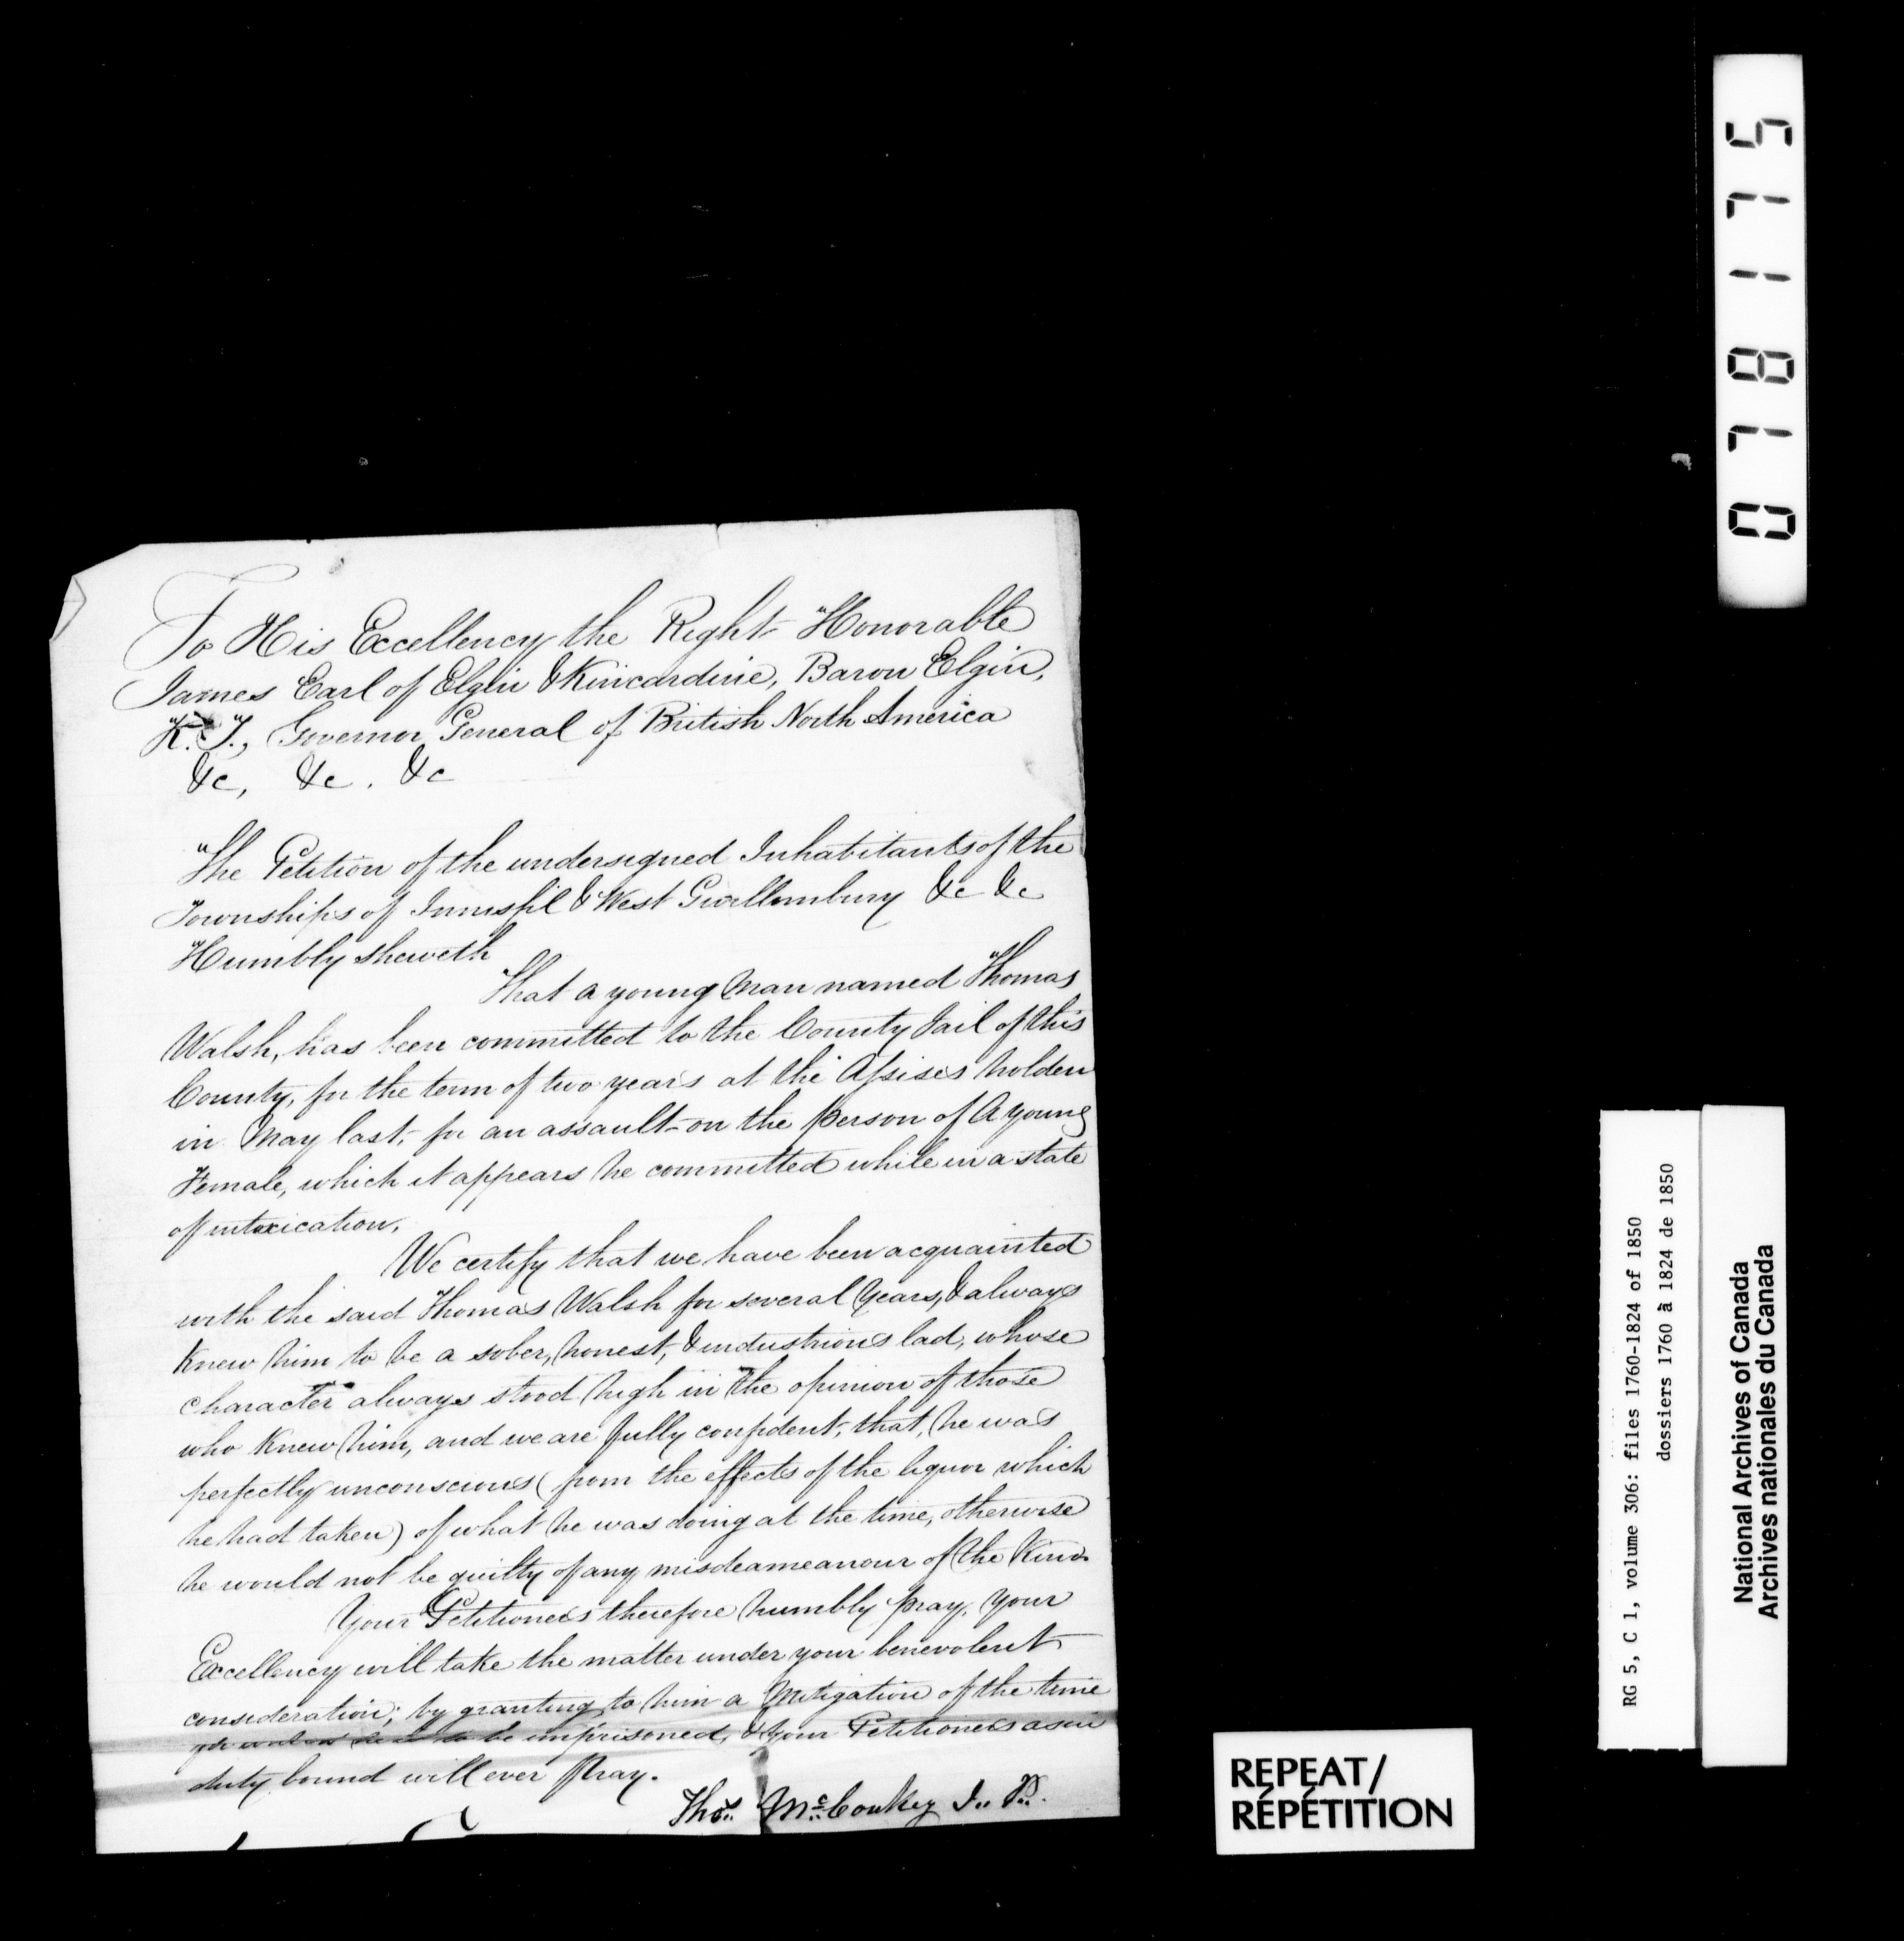 To His Excellency the Right Honorable
James Earl of Elgin & Kincardine, Baron Elgin,
K.T., Governor General of British North America
&c, &c. &c
The Petition of the undersigned Inhabitants of the
Townships of Innisfil & West Gwillimbury &c &c
Humbly sheweth
That a young man named Thomas
Walsh, has been committed to the County Jail of this
County, for the term of two years at the Assises holden
in May last, for an assault on the person of A young
Female, which it appears he committed while in a state
of intoxication,
We certify that we have been acquainted
with the said Thomas Walsh for several years, & always
Knew him to be a sober, honest, & industrious lad, whose
character always stood high in the opinion of those
who Knew him, and we are fully confident, that, he was
perfectly unconscious (from the effects of the liquor which
he had taken) of what he was doing at the time, otherwise
he would not be guilty of any misdeameanour of the Kind.
Your Petitioners therefore humbly pray, your
Excellency will take the matter under your benevolent
consideration; by granting to him a Mitigation of the time
to be imprisoned, & your Petitioners as in
duty bound will ever Pray.
Thos. McConkey J. P.
0781175
RG 5, C 1, volume 306: files 1760-1824 of 1850
dossiers 1760 à 1824 de 1850
National Archives of Canada
Archives nationales du Canada
REPEAT/
RÉPÉTITION